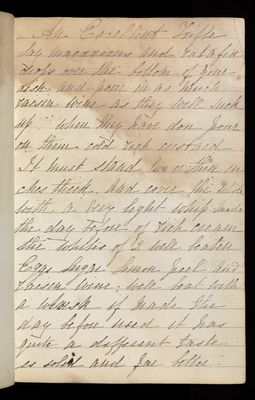 An Excellent Trifle
Lay macaroons and ratafia
drops over the bottom of your
dish and pour in as much
raisin wine as they will suck
up when they have don pour
on them cold rich custard
It must stand two or three in
ches thick and cover the whole
with a very light whip made
the day before of rich cream
the whites of 2 well beaten
Eggs Sugar Lemon peel and
raisin wine, well beat with
a whisk if made the
day before used it has
quite a different taste
es solid and far better